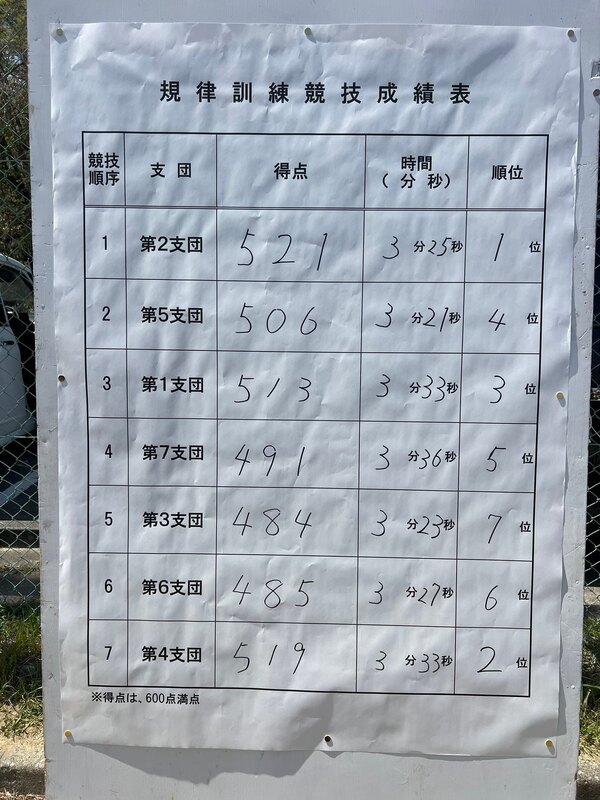 規律訓練競技成績表
競技順序 支団 得点 時間(分 秒) 順位
1 第2支団 521 3分25秒 1位
2 第5支団 506 3分21秒 4位
3 第1支団 513 3分33秒 3位
4 第7支団 491 3分36秒 5位
5 第3支団 484 3分23秒 7位
6 第6支団 485 3分27秒 6位
7 第4支団 519 3分33秒 2位
※得点は、600点満点